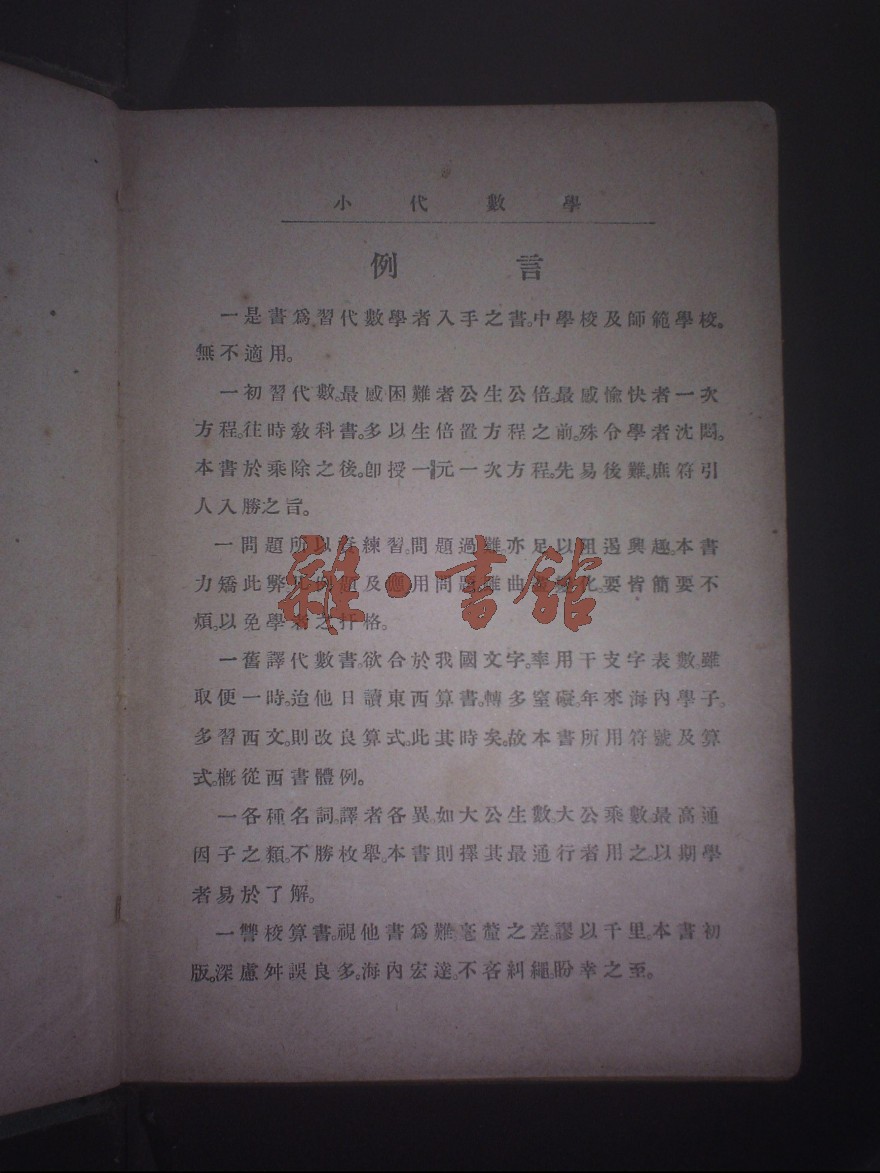 小代數學
例言
一是書爲習代數學者入手之書。中學校及師範學校。
無不適用。
一初習代數。最感困難者公生公倍。最感愉快者一次
方程。往時敎科書。多以生倍置方程之前。殊令學者沈悶。
本書於乘除之後。卽授一元一次方程。先易後難。庶符引
人入勝之旨。
一問題所以練習。問題過難。亦足以阻遏興趣。本書
力矯此弊。凡例題及應用問題。雖曲化。要皆簡要不
煩。以免學者之扞格。
一舊譯代數書。欲合於我國文字。率用干支字表數。雖
取便一時。迨他日讀東西算書。轉多窒礙。年來海內學子。
多習西文。則改良算式。此其時矣。故本書所用符號及算
式。槪從西書體例。
一各種名詞。譯者各異。如大公生數。大公乘數。最高通
因子之類。不勝枚舉。本書則擇其最通行者用之。以期學
者易於了解。
一讐校算書。視他書爲難。毫釐之差。謬以千里。本書初
版。深慮舛誤良多。海內宏達。不吝糾繩。盼幸之至。
雜·書館